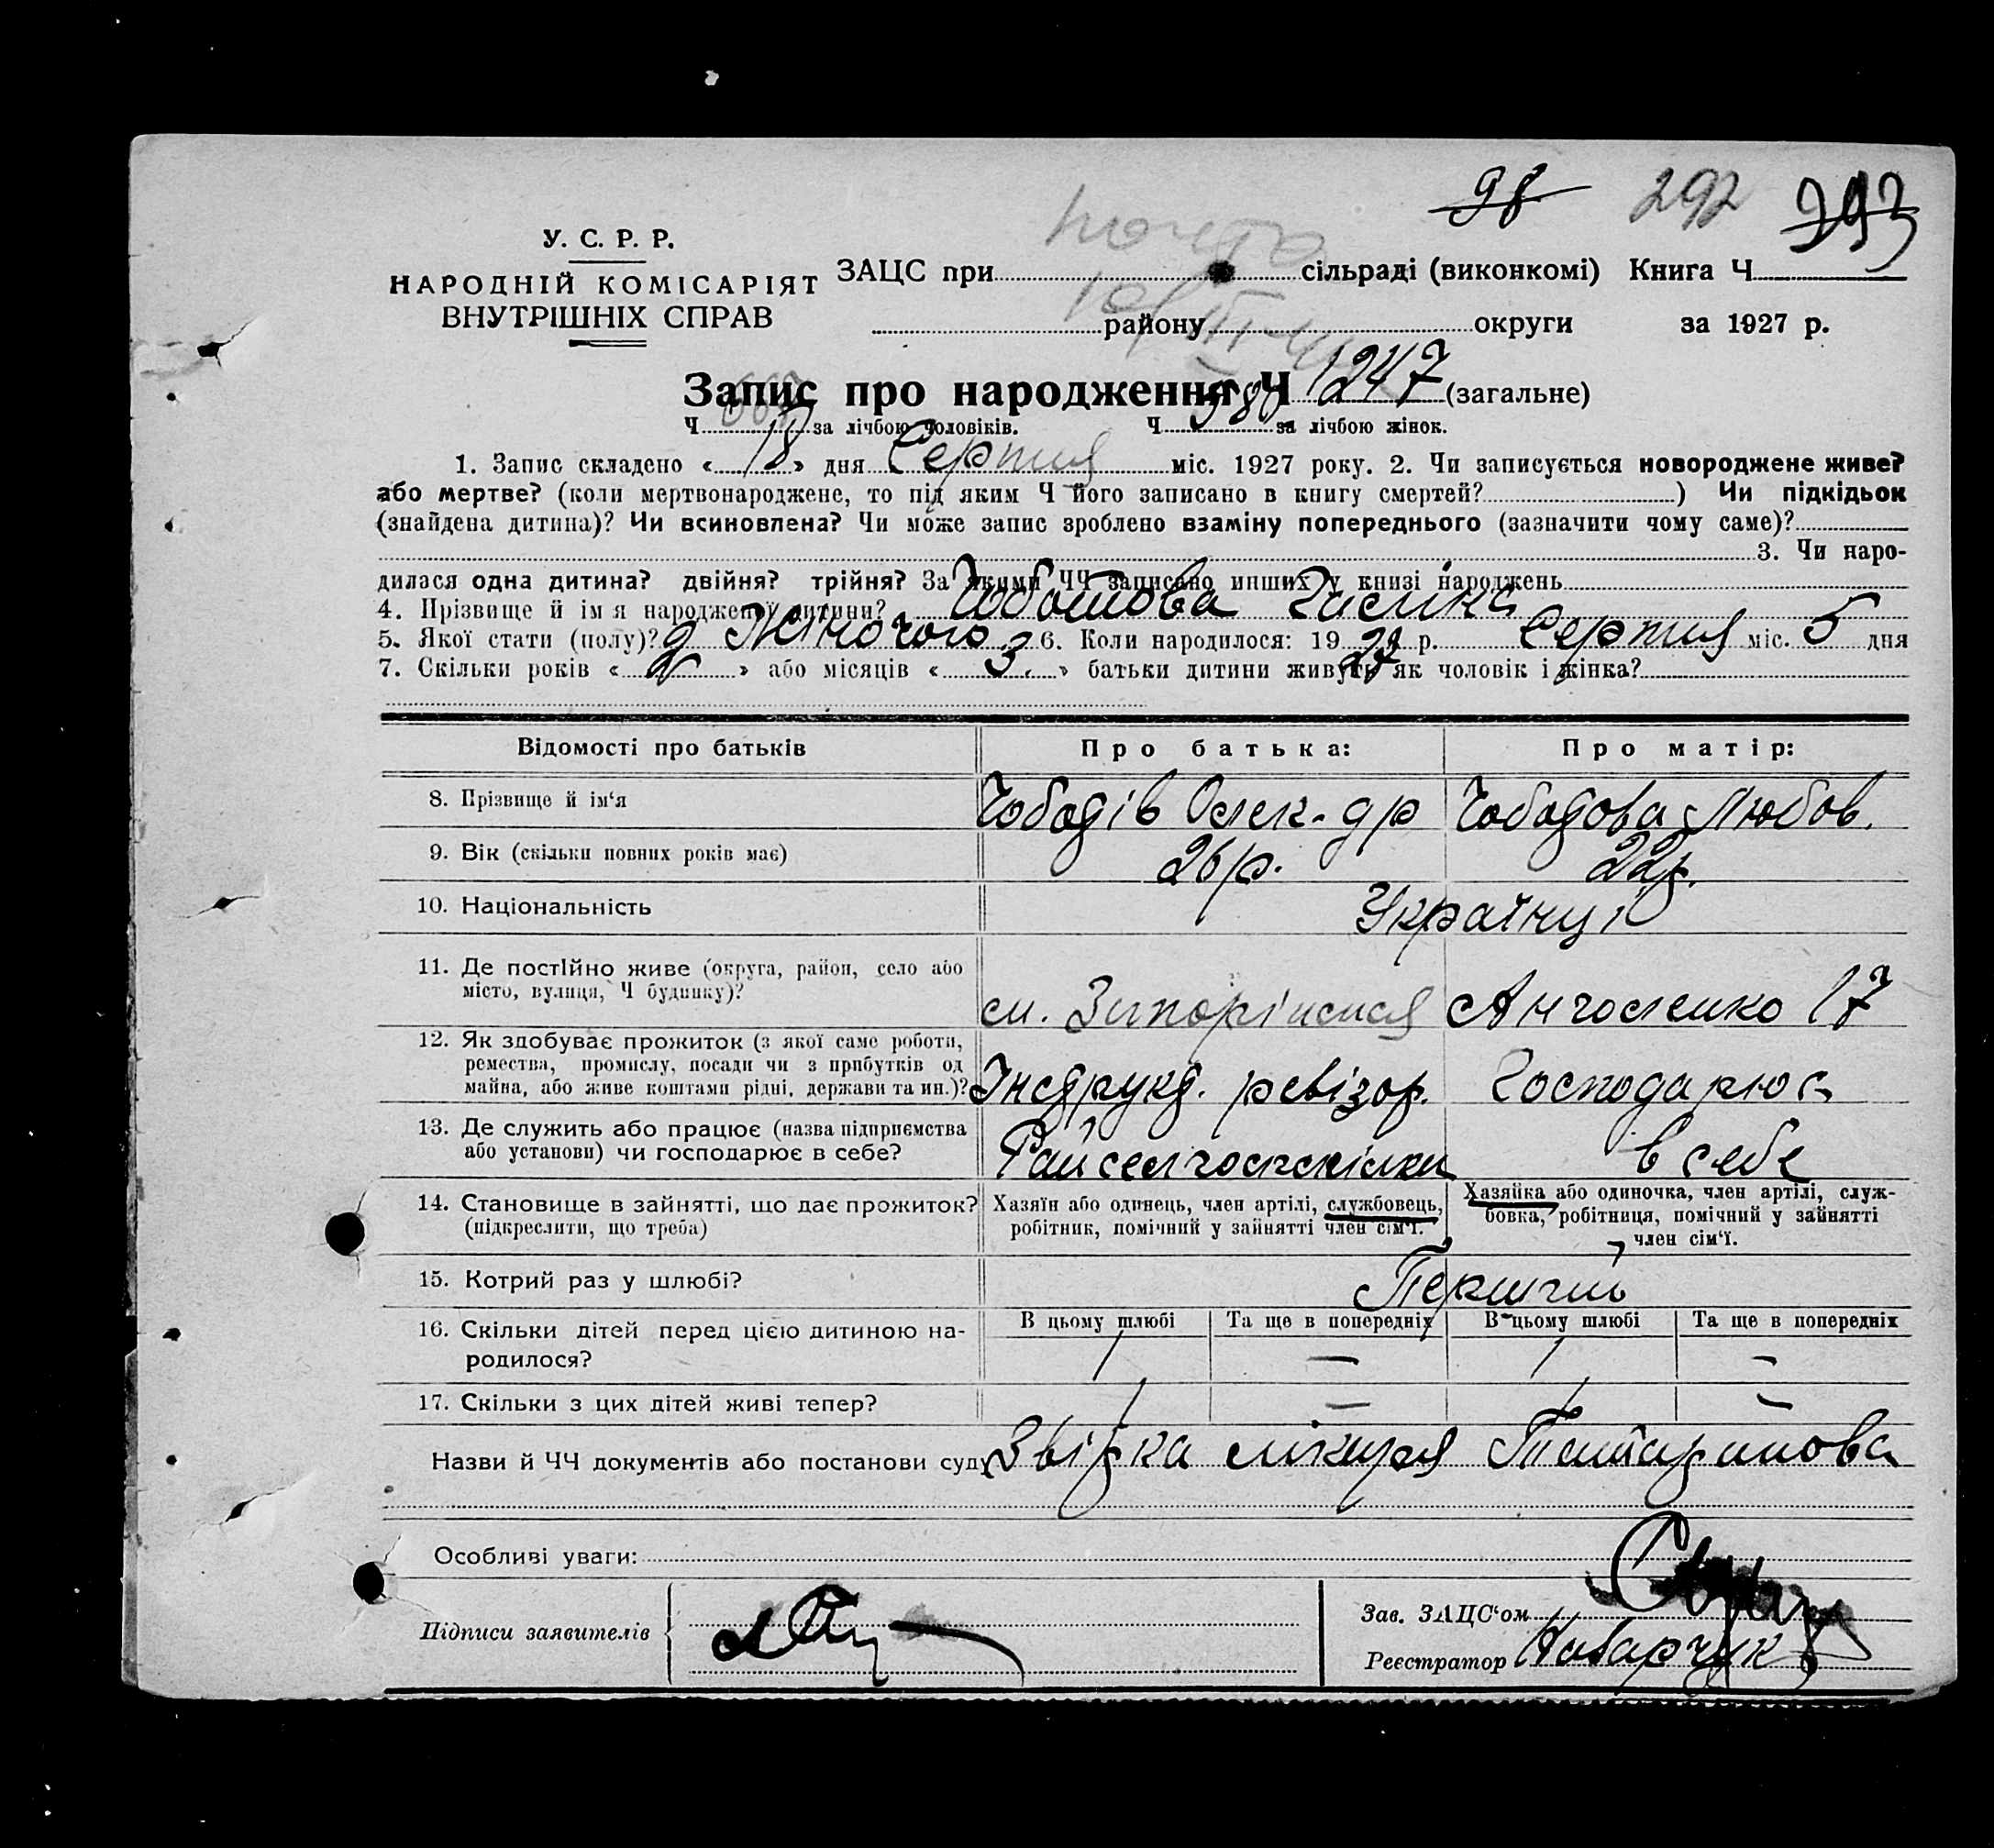 98 292 293
У. С. Р. Р.
НАРОДНІЙ КОМІСАРІЯТ
ВНУТРІШНІХ СПРАВ
ЗАЦС при сільраді (виконкомі) Книга Ч
району округи за 1927 р.
Запис про народження Ч 1247 (загальне)
Ч за лічбою чоловіків. Ч 580 за лічбою жінок.
1. Запис складено « 18 » дня Серпня міс. 1927 року. 2. Чи записується новороджене живе?
або мертве? (коли мертвонароджене, то під яким Ч його записано в книгу смертей? ) Чи підкідьок
(знайдена дитина)? Чи всиновлена? Чи може запис зроблено взаміну попереднього (зазначити чому саме)?
3. Чи наро-
дилася одна дитина? двійня? трійня? За якими ЧЧ записано инших у книзі народжень
4. Прізвище й ім я народженої дитини? Чоботова
5. Якої стати (полу)? Жіночого 6. Коли народилося: 19 27 р. Серпня міс. 5 дня
7. Скільки років « » або місяців « 3. » батьки дитини живуть як чоловік і жінка?
Відомості про батьків Про батька: Про матір:
8. Прізвище й ім‘я Чоботів Олек-др Чоботова Любов.
9. Вік (скільки повних років має) 26 р. 22 р.
10. Національність Українці
11. Де постійно живе (округа, район, село або
місто, вулиця, Ч будинку)? м. Запоріжжя 17
12. Як здобуває прожиток (з якої саме роботи,
ремества, промислу, посади чи з прибутків од
майна, або живе коштами рідні, держави та ин.)? Інструкт. ревізор. Господарює
13. Де служить або працює (назва підприємства
або установи) чи господарює в себе? Райсельгоспспілки в себе
14. Становище в зайнятті, що дає прожиток?
(підкреслити, що треба)
Хазяїн або одинець, член артілі, службовець,
робітник, помічний у зайнятті член сім‘ї.
Хазяйка або одиночка, член артілі, служ-
бовка, робітниця, помічний у зайнятті
член сім‘ї.
15. Котрий раз у шлюбі? Перший
16. Скільки дітей перед цією дитиною на-
родилося?
В цьому шлюбі Та ще в попередніх В цьому шлюбі Та ще в попередніх
1 — 1 —
17. Скільки з цих дітей живі тепер? 1 — 1 —
Назви й ЧЧ документів або постанови суду Звірка лікаря
Особливі уваги:
Підписи заявителів
Зав. ЗАЦС‘ом
Реєстратор